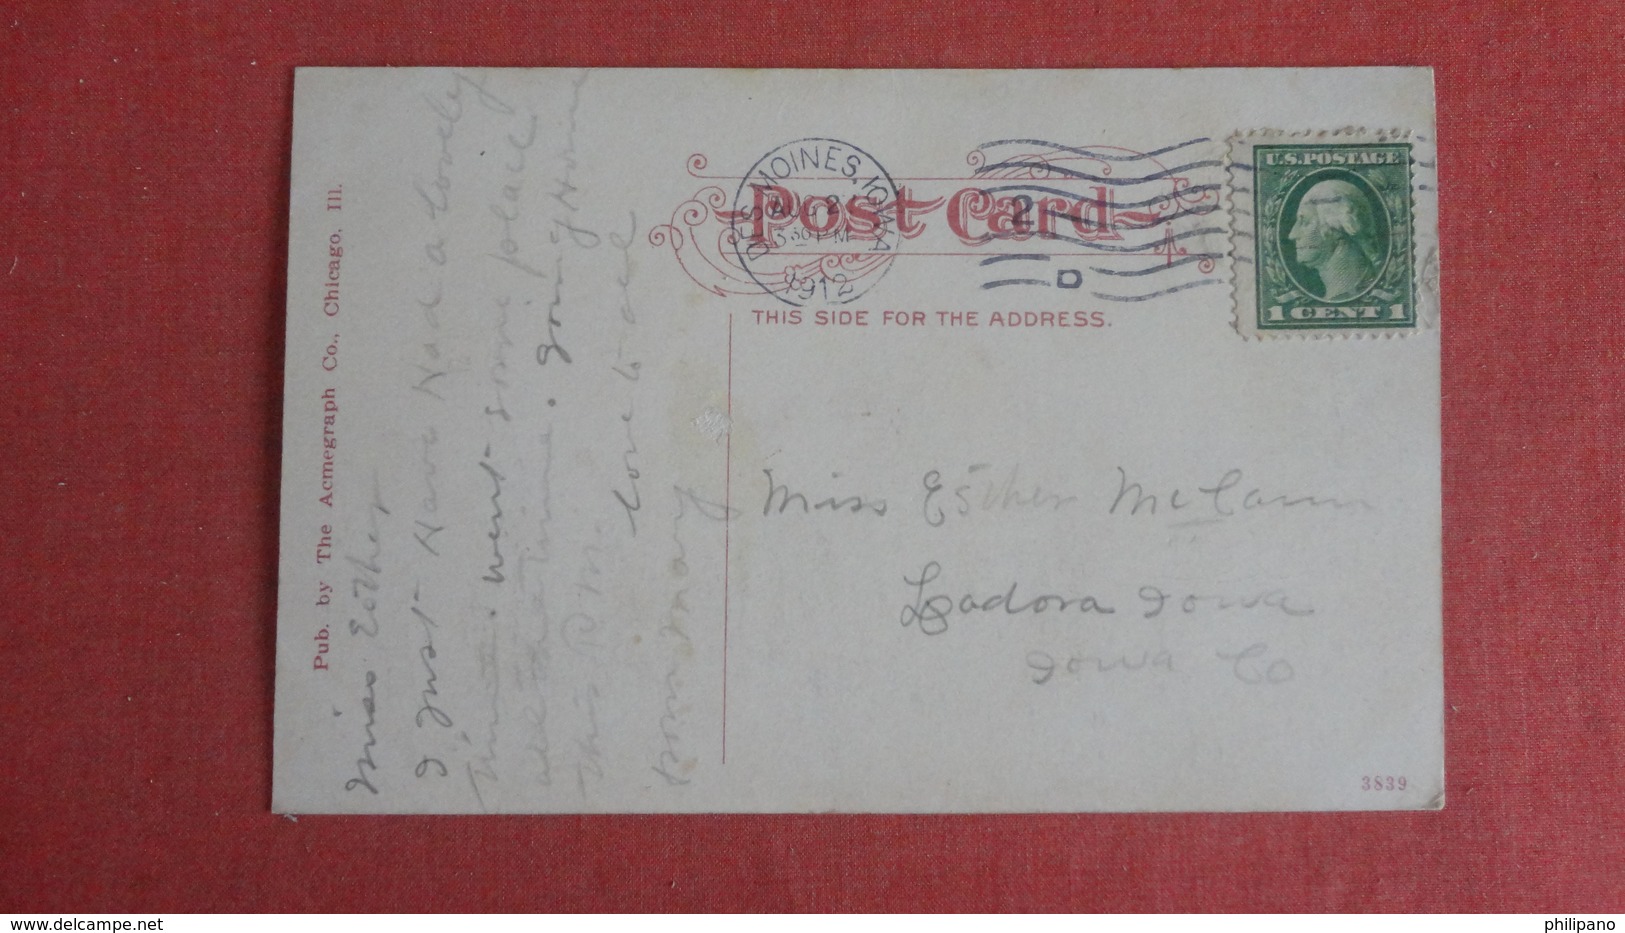 Pub. by The Acmegraph Co., Chicago, Ill.
Miss Esther
I just Have Had a lovely
time. went some place
all the time. going Home
this P.M.
Love to all
from Mary
POST CARD
DES MOINES, IOWA
AUG 2
3 30 P M
1912
2
D
U.S. POSTAGE
1 CENT 1
THIS SIDE FOR THE ADDRESS.
Miss Esther McCann
Ladora Iowa
Iowa Co
3839
philipano